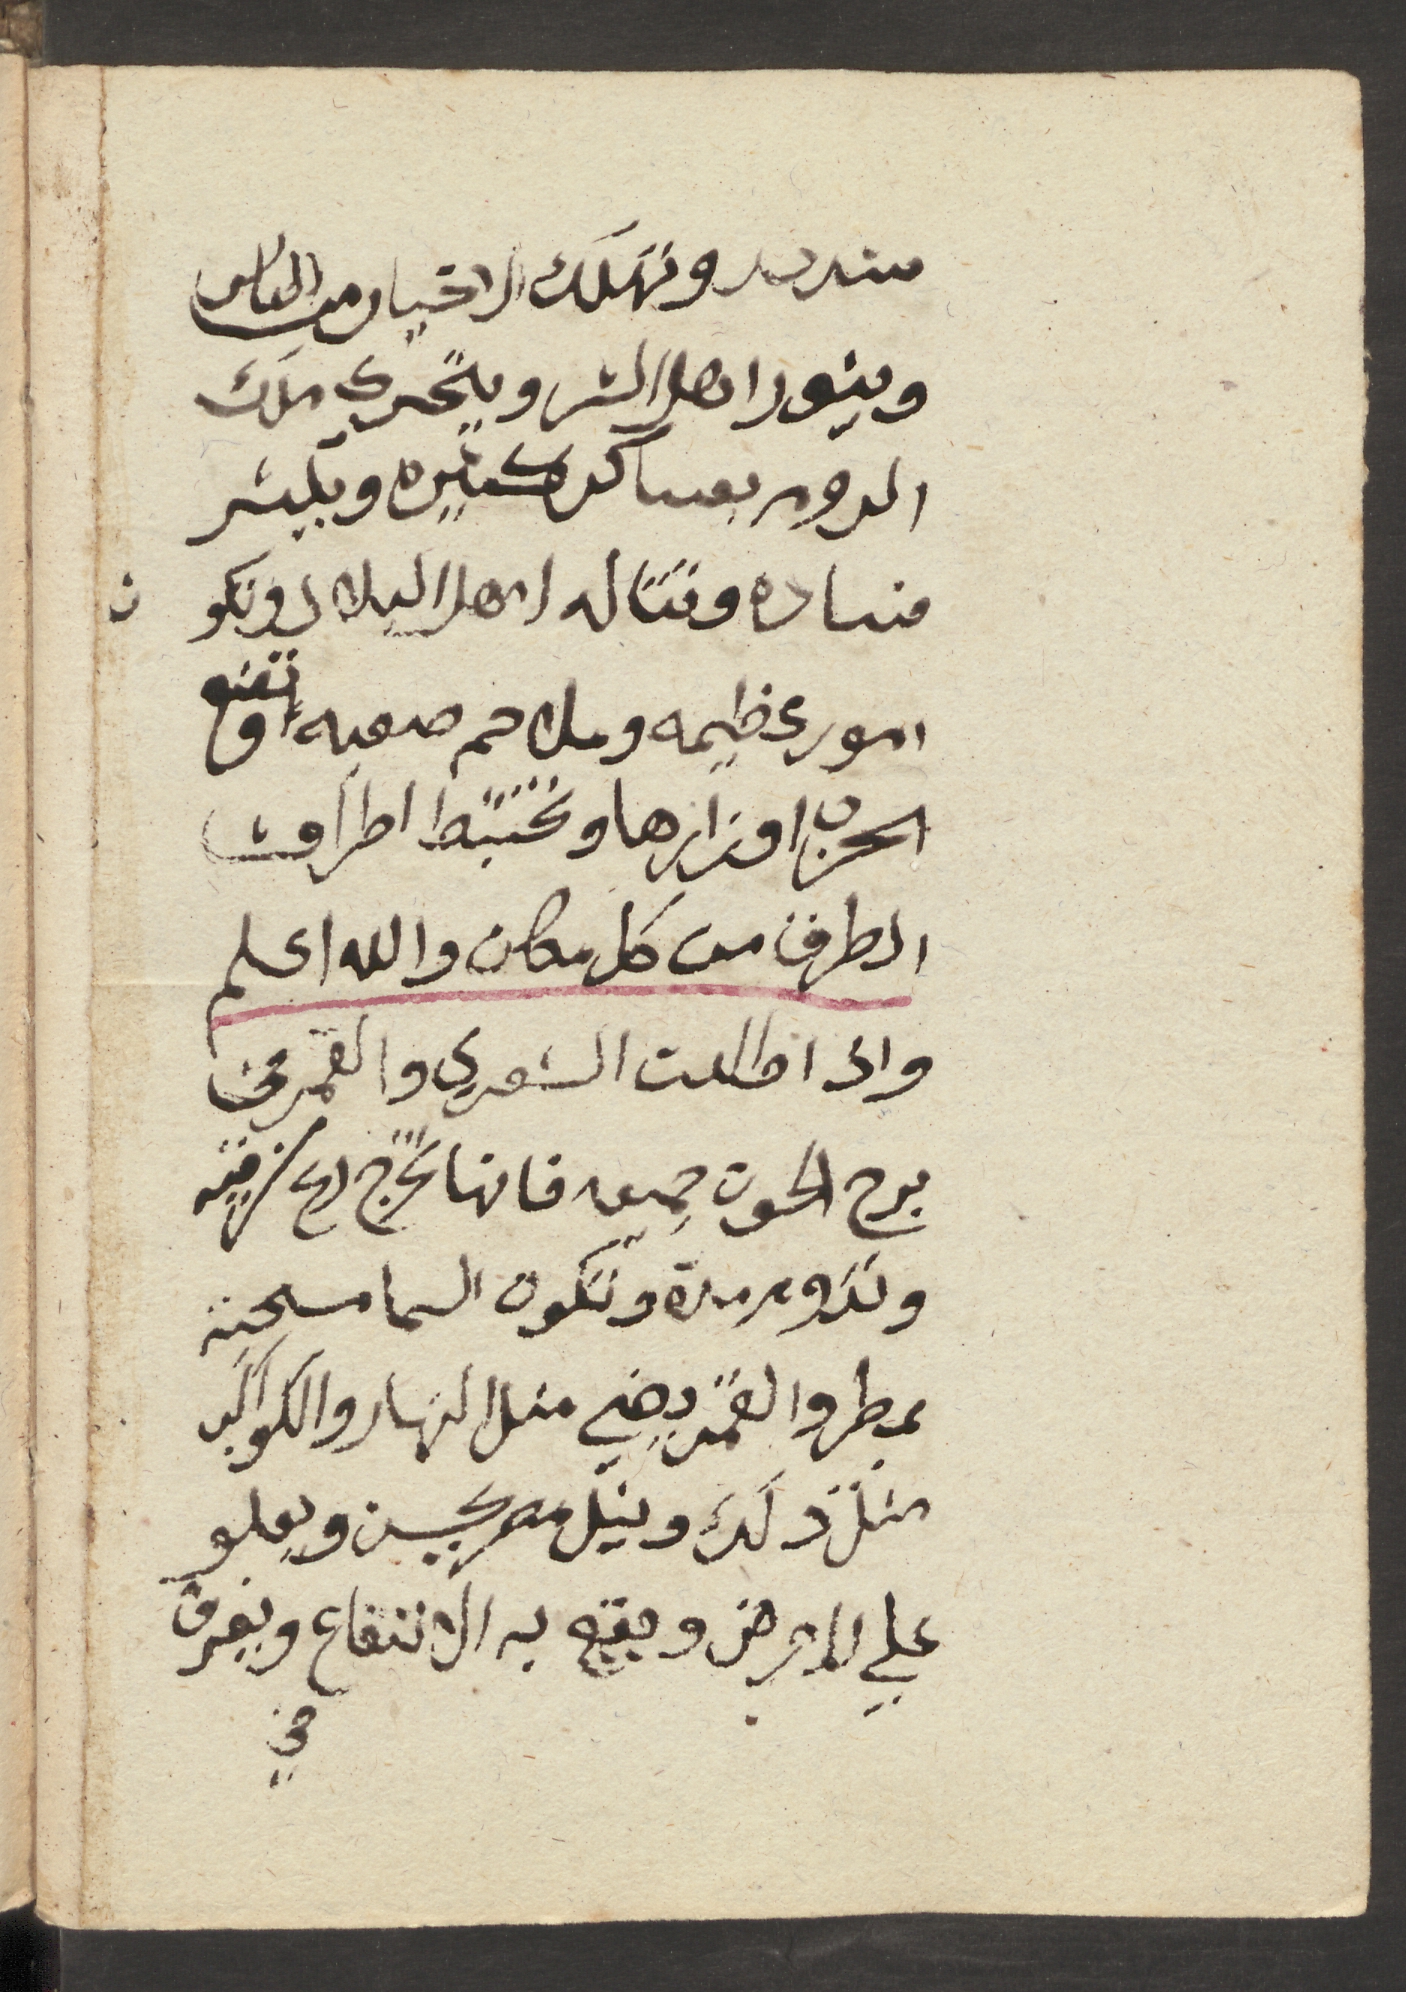 شديد وتهلك الاخيار من الناس
ويثور اهل الشر ويتحرك ملك
الروم بعساكر كثيره ويكثر
فساده وقتاله لاهل البلاد وتكو
ن
امور عظيمه وملاحم صعبه وتضع
الحرب اوزارها وتختبط اطراف
الطرق من كل مكان والله اعلم
واذا طلعت الشعري والقمر في
برج الحوت جميعه فانها تخرج ريح
وتدوم مدة وتكون السما
بمطر والقمر يضي مثل النهار والكواكب
مثل ذلك ونيل مصر يحسن ويعلو
علي الارض ويقع به الانتفاع ويغرق
في